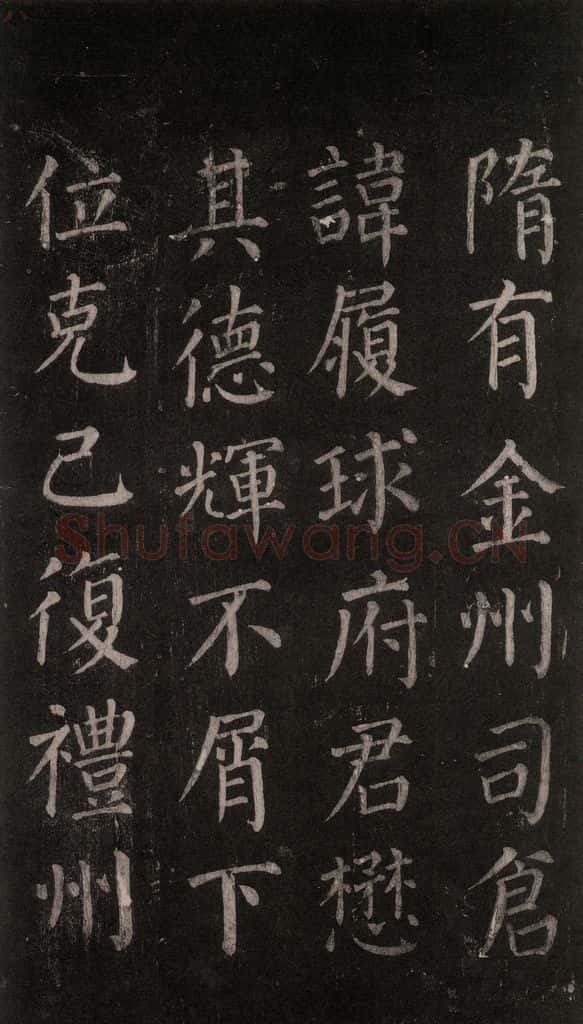 隋有金州司倉
諱履球府君懋
其德輝不屑下
位克己復禮州
Shufawang.CN